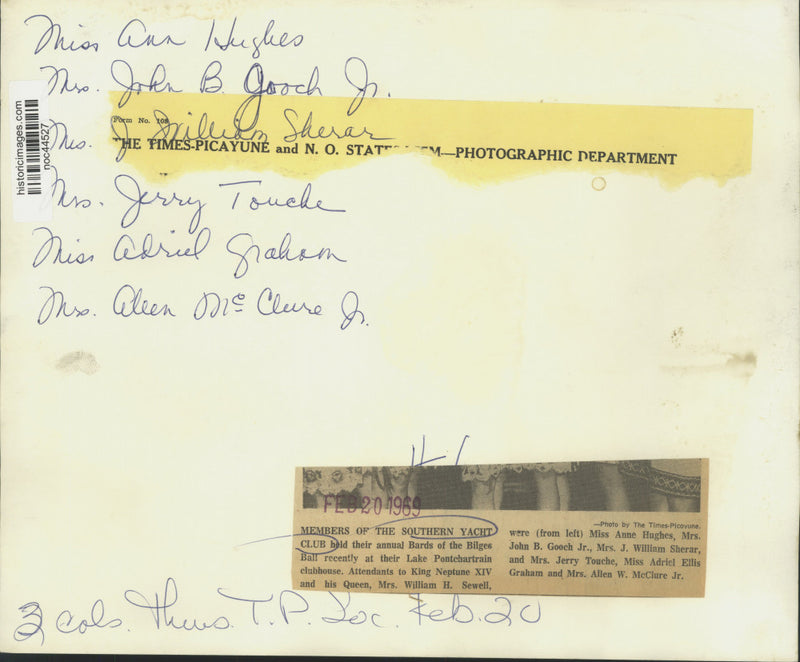 Miss Ann Hughes
Mrs. John B Gooch Jr.
Form No. 108
Mrs. J William Sherar
THE TIMES-PICAYUNE and N. O. STATES —PHOTOGRAPHIC DEPARTMENT
historicimages.com
noc44527
Mrs. Jerry Touche
Miss Adriel Graham
Mrs. Allen Mc Clure Jr.
FEB 20 1969
—Photo by The Times-Picayune.
MEMBERS OF THE SOUTHERN YACHT
CLUB held their annual Bards of the Bilges
Ball recently at their Lake Pontchartrain
clubhouse. Attendants to King Neptune XIV
and his Queen, Mrs. William H. Sewell,
were (from left) Miss Anne Hughes, Mrs.
John B. Gooch Jr., Mrs. J. William Sherar,
and Mrs. Jerry Touche, Miss Adriel Ellis
Graham and Mrs. Allen W. McClure Jr.
2 cols. Thurs. T.P. Soc. Feb. 20